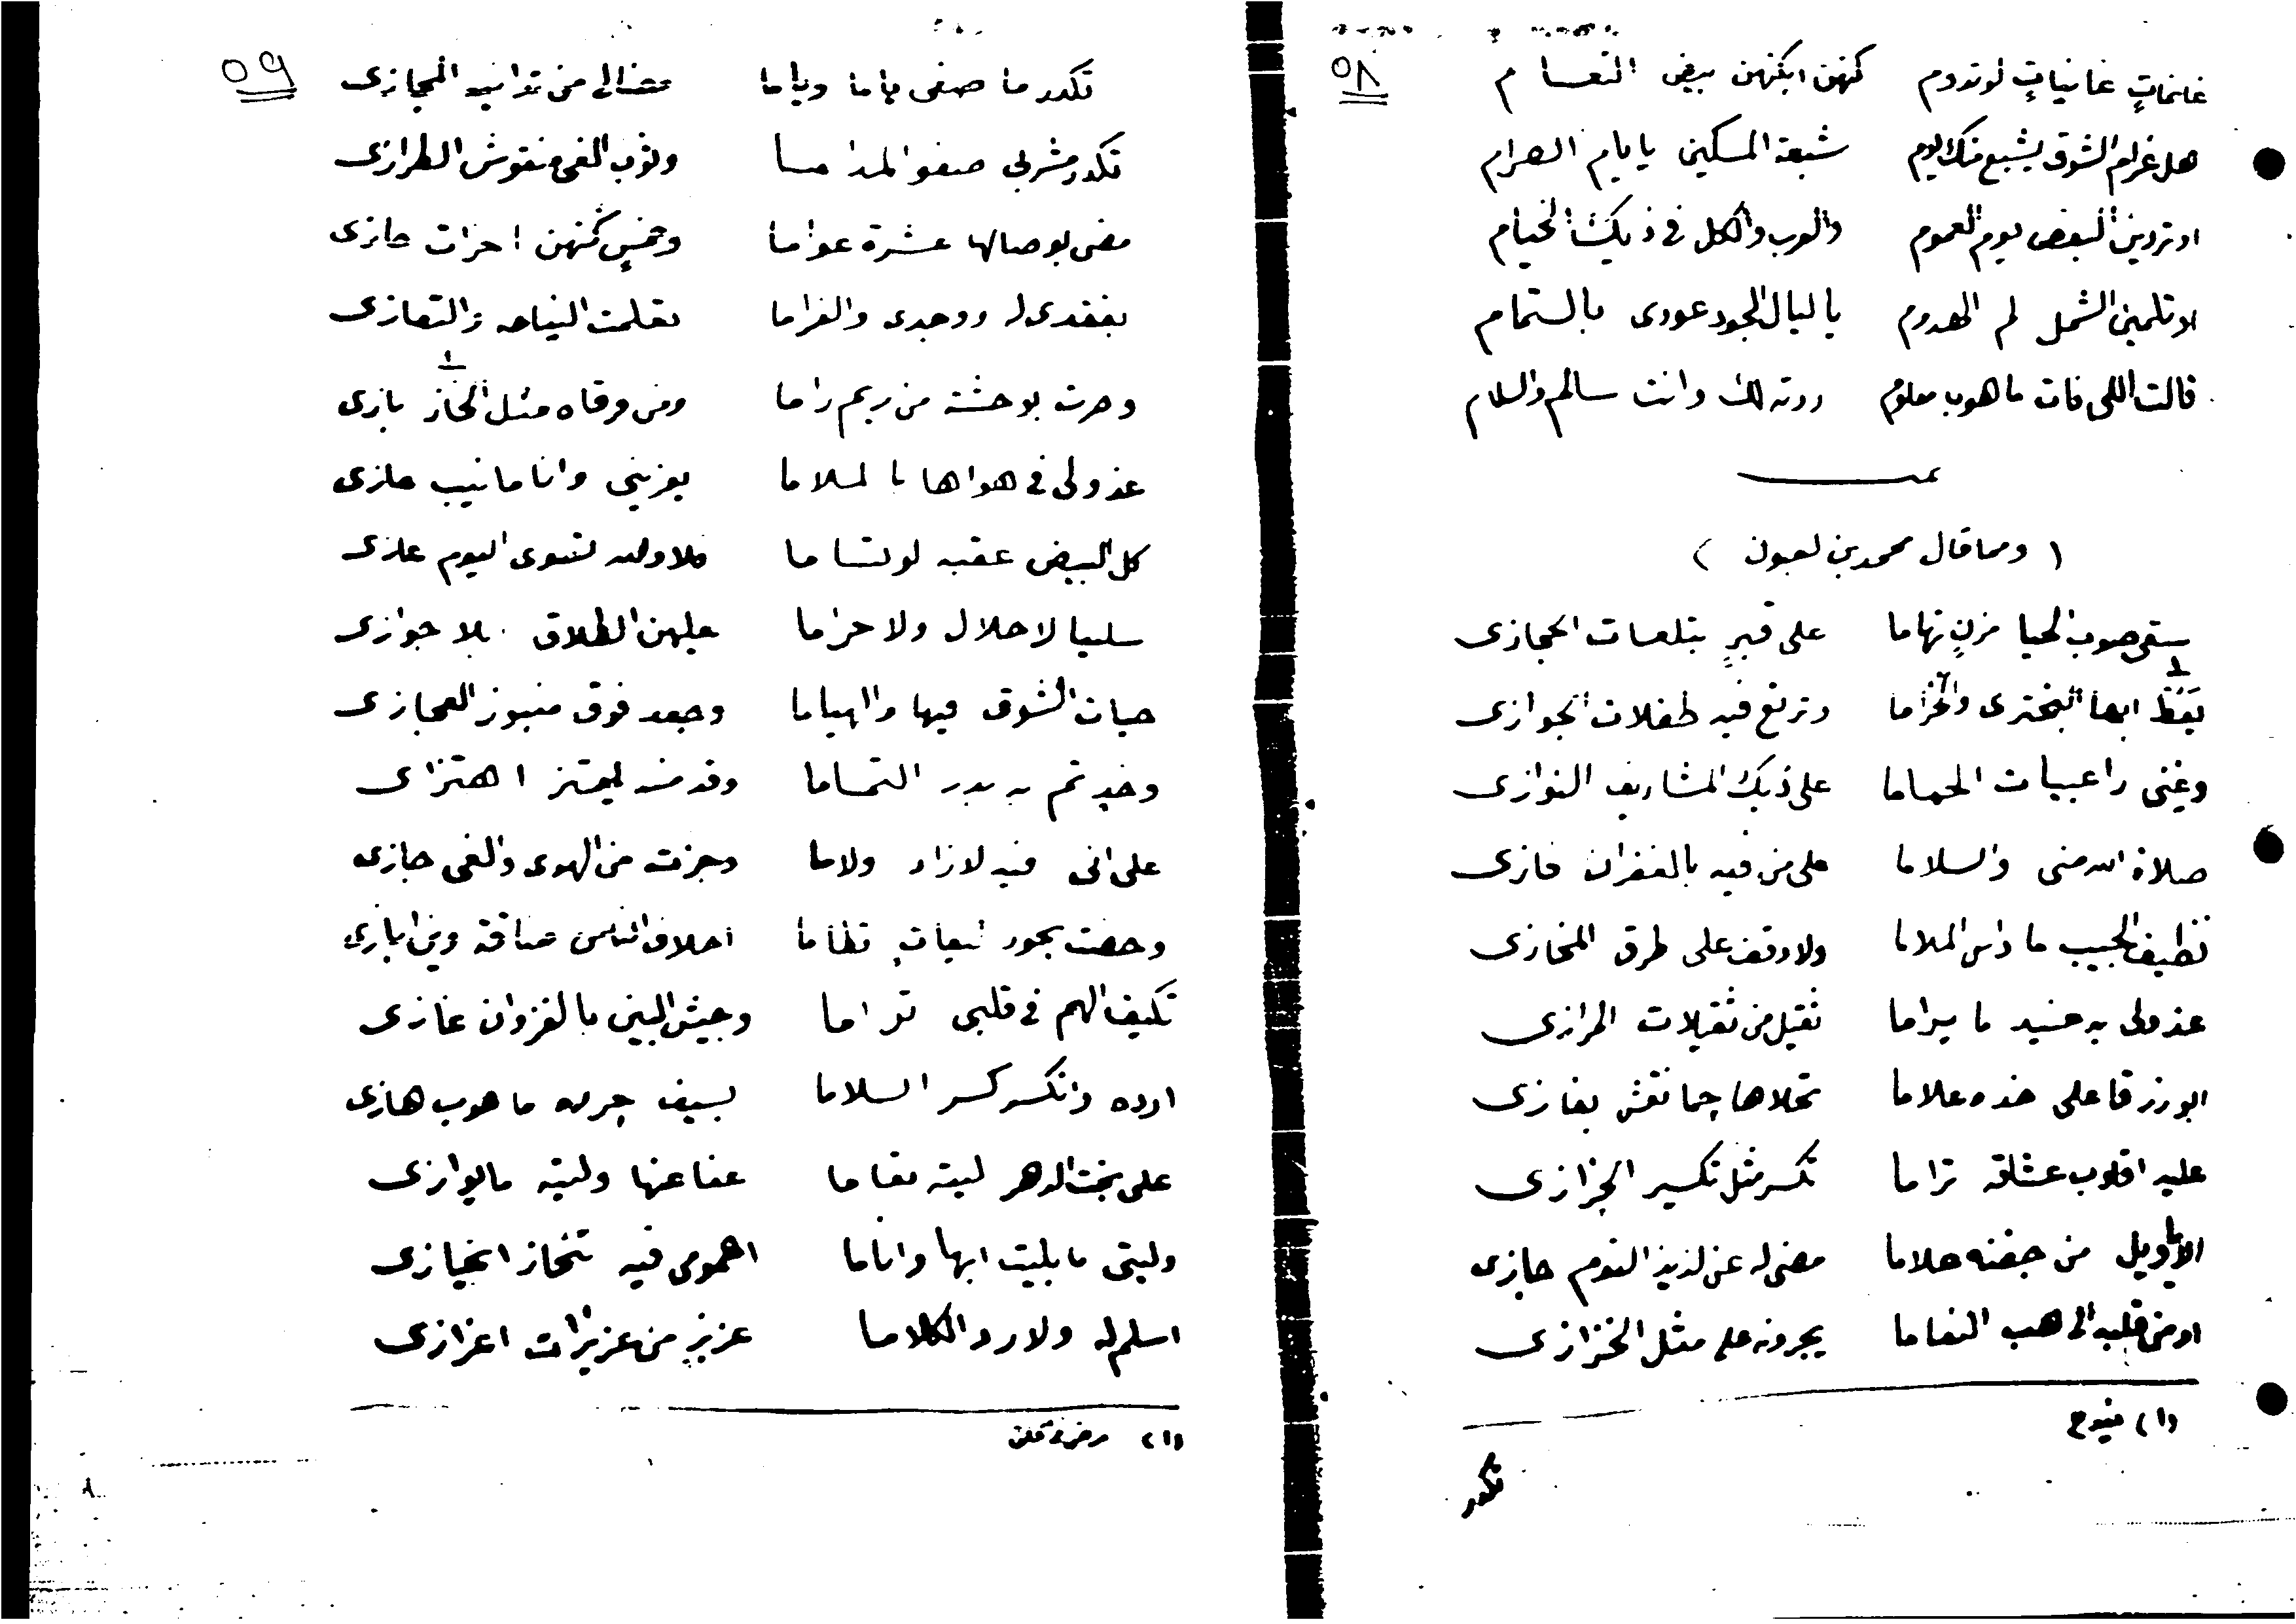 ٥٨
غانمات غانيات لو تدوم كنهن ابكنهن بيض النعام
هل غرام الشوق يشبع منك يوم شبعة المسكين يا يام الصرام
او تردين البعض يوم العموم والعرب والكل في ذيك الخيام
او تلمين الشمل لم الهدوم يا ليال الجود عودي بالتمام
قالت اللي فات ما هوب معلوم ردته لك وانت سالم والسلام
تمت
( ومما قال محمد بن لعبون )
سقى صوب الحيا مزنٍ تهاما على قبرٍ بتلعات الحجازي
يغط ابها البختري والخزاما وترتع فيه طفلات الجوازي
وغنى راعبيات الحماما على ذيك المشاريف النوازي
صلاة الله مني والسلاما على من فيه بالغفران فازي
نظيف الجيب ما داس الملاما ولا وقف على طرق المخازي
عذولي به عنيد ما يراما ثقيل من ثقيلات المرازي
ابو زرقا على خده علاما تحلاها جما نقش بغازي
عليه اقلوب عشاقه تراما تكسر مثل تكسير الجزازي
الا يا ويل من جفنه علاما مضى له عن لذيذ النوم جازي
او من قلبه الى هب النعاما يجرونه على مثل الخزازي
(١) فيوح
تكدر
٥٩
تكدر ما صفى ياما وياما صفالي من تدانيه المجازي
تكدر مشربي صفو المداما وثوب الغي منقوش الطرازي
مضى بوصالها عشرة عواما وخمسٍ كنهن احزات حازي
بفقدي له ووجدي والغراما تعلمت النياحه والتعازي
وصرت بوحشة من ريم راما ومن فرقاه مثل الخاز بازي
عذولي في هواها بالملاما يعزيني وانا مانيب عازي
كل البيض عقبه لو تساما فلا والله تسوى اليوم غازي
سلبيا لا حلال ولا حراما عليهن الطلاق بلا جوازي
حيات الشوق فيها والهياما وجعد فوق منبوز العجازي
وخدٍ تم به بدر التماما وقد منه ليهتز اهتزازي
على اني فيه لا زاد ولاما وجزت من الهوى والغي جازي
وخضت بحور لتعات
تكيف الهم في قلبي تراما وجيش البين بالغزوان غازي
ارده وانكسر كسر السلاما بسيف جرده ما هوب هازي
على بخت الدهر ليته تعاما عفا عنها وليته ما يوازي
وليتي ما بليت ابها واناما اهمومي فيه تنحاز انحيازي
اسلم له ولا رد الكلاما عزيزٍ من عزيزات اعزازي
(١)